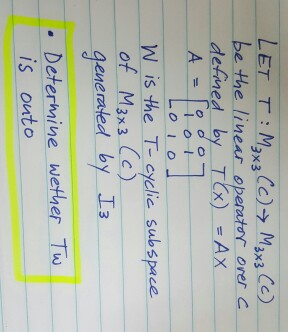 LET T : M3x3 (C) → M3x3 (C)
be the linear operator over C
defined by T(x) = AX
A = [0 0 0
1 0 1
0 1 0]
W is the T-cyclic subspace
of M3x3 (C)
generated by I3
• Determine wether Tw
is onto